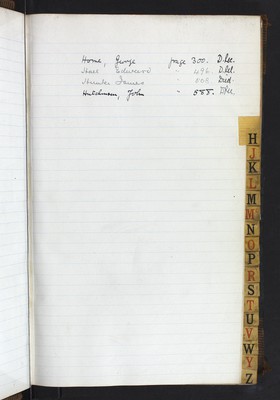 Horne, George page 300. Dec.
Hall Edward " 496. Dec.
Hunter James " 508 Died
Hutchinson, John " 555. Dec
H
J
K
L
M
M
N
O
P
R
S
T
U
V
W
Y
Z